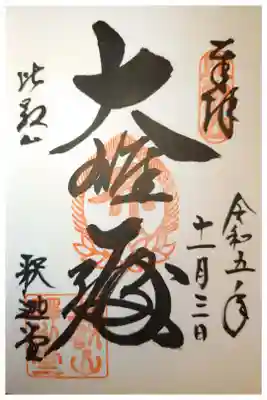 奉拝
令和五年
十一月三日
大雄殿
比叡山
釈迦堂